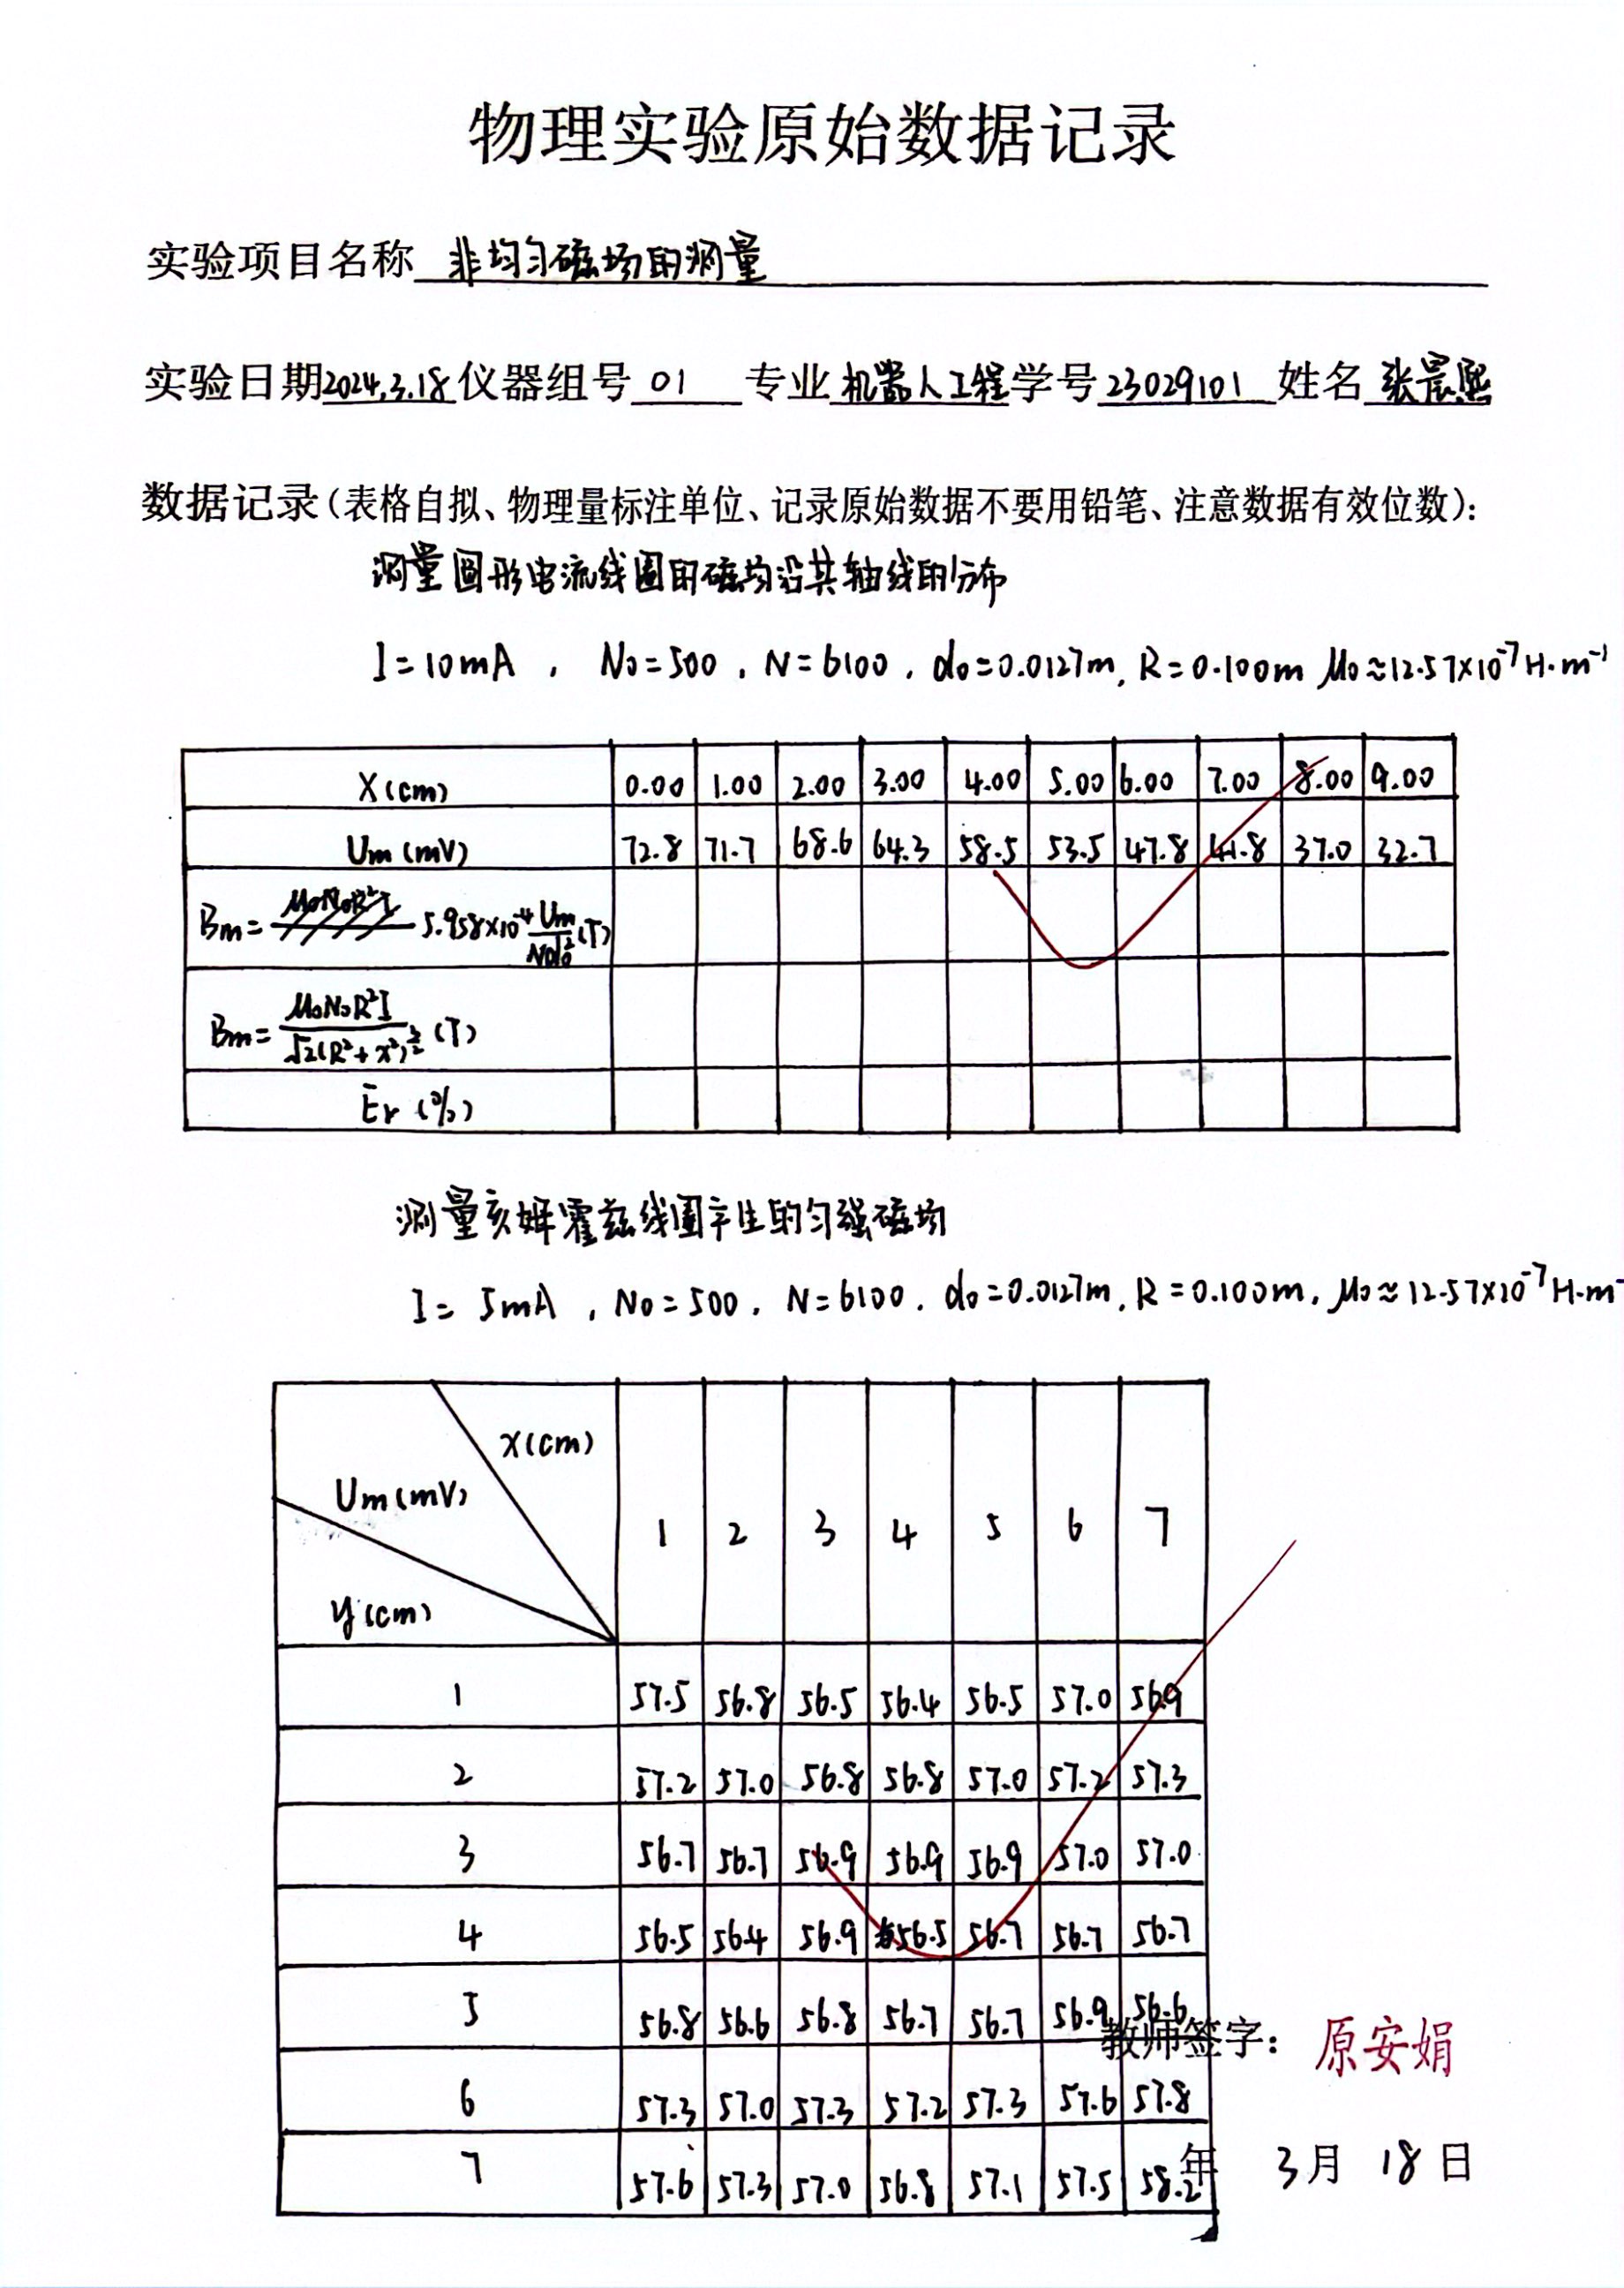 物理实验原始数据记录
实验项目名称 非均匀磁场的测量
实验日期2024.3.18仪器组号 01 专业 机器人工程学号 23029101 姓名 张晨熙
数据记录(表格自拟、物理量标注单位、记录原始数据不要用铅笔、注意数据有效位数):
测量圆形电流线圈的磁场沿其轴线的分布
I=10mA , N₀=500 , N=6100 , d₀=0.0127m, R=0.100m μ₀≈12.57×10⁻⁷H·m⁻¹
X(cm) 0.00 1.00 2.00 3.00 4.00 5.00 6.00 7.00 8.00 9.00
Um(mV) 72.8 71.7 68.6 64.3 58.5 53.5 47.8 41.8 37.0 32.7
Bm= 5.958×10⁻⁴ Um/Nd₀² (T)
Bm= μ₀N₀R²I/√2(R²+x²)^3/2 (T)
Er (%)
测量亥姆霍兹线圈产生的匀强磁场
I= 5mA , N₀=500 , N=6100 , d₀=0.0127m, R=0.100m, μ₀≈12.57×10⁻⁷H·m⁻
x(cm)
Um(mV)
y(cm)
1 2 3 4 5 6 7
1 57.5 56.8 56.5 56.4 56.5 57.0 56.9
2 57.2 57.0 56.8 56.8 57.0 57.2 57.3
3 56.7 56.7 56.9 56.9 56.9 57.0 57.0
4 56.5 56.4 56.9 56.5 56.7 56.7 56.7
5 56.8 56.6 56.8 56.7 56.7 56.9 56.6
教师签字: 原安娟
6 57.3 57.0 57.3 57.2 57.3 57.6 57.8
7 57.6 57.3 57.0 56.8 57.1 57.5 58.2
年 3月 18日